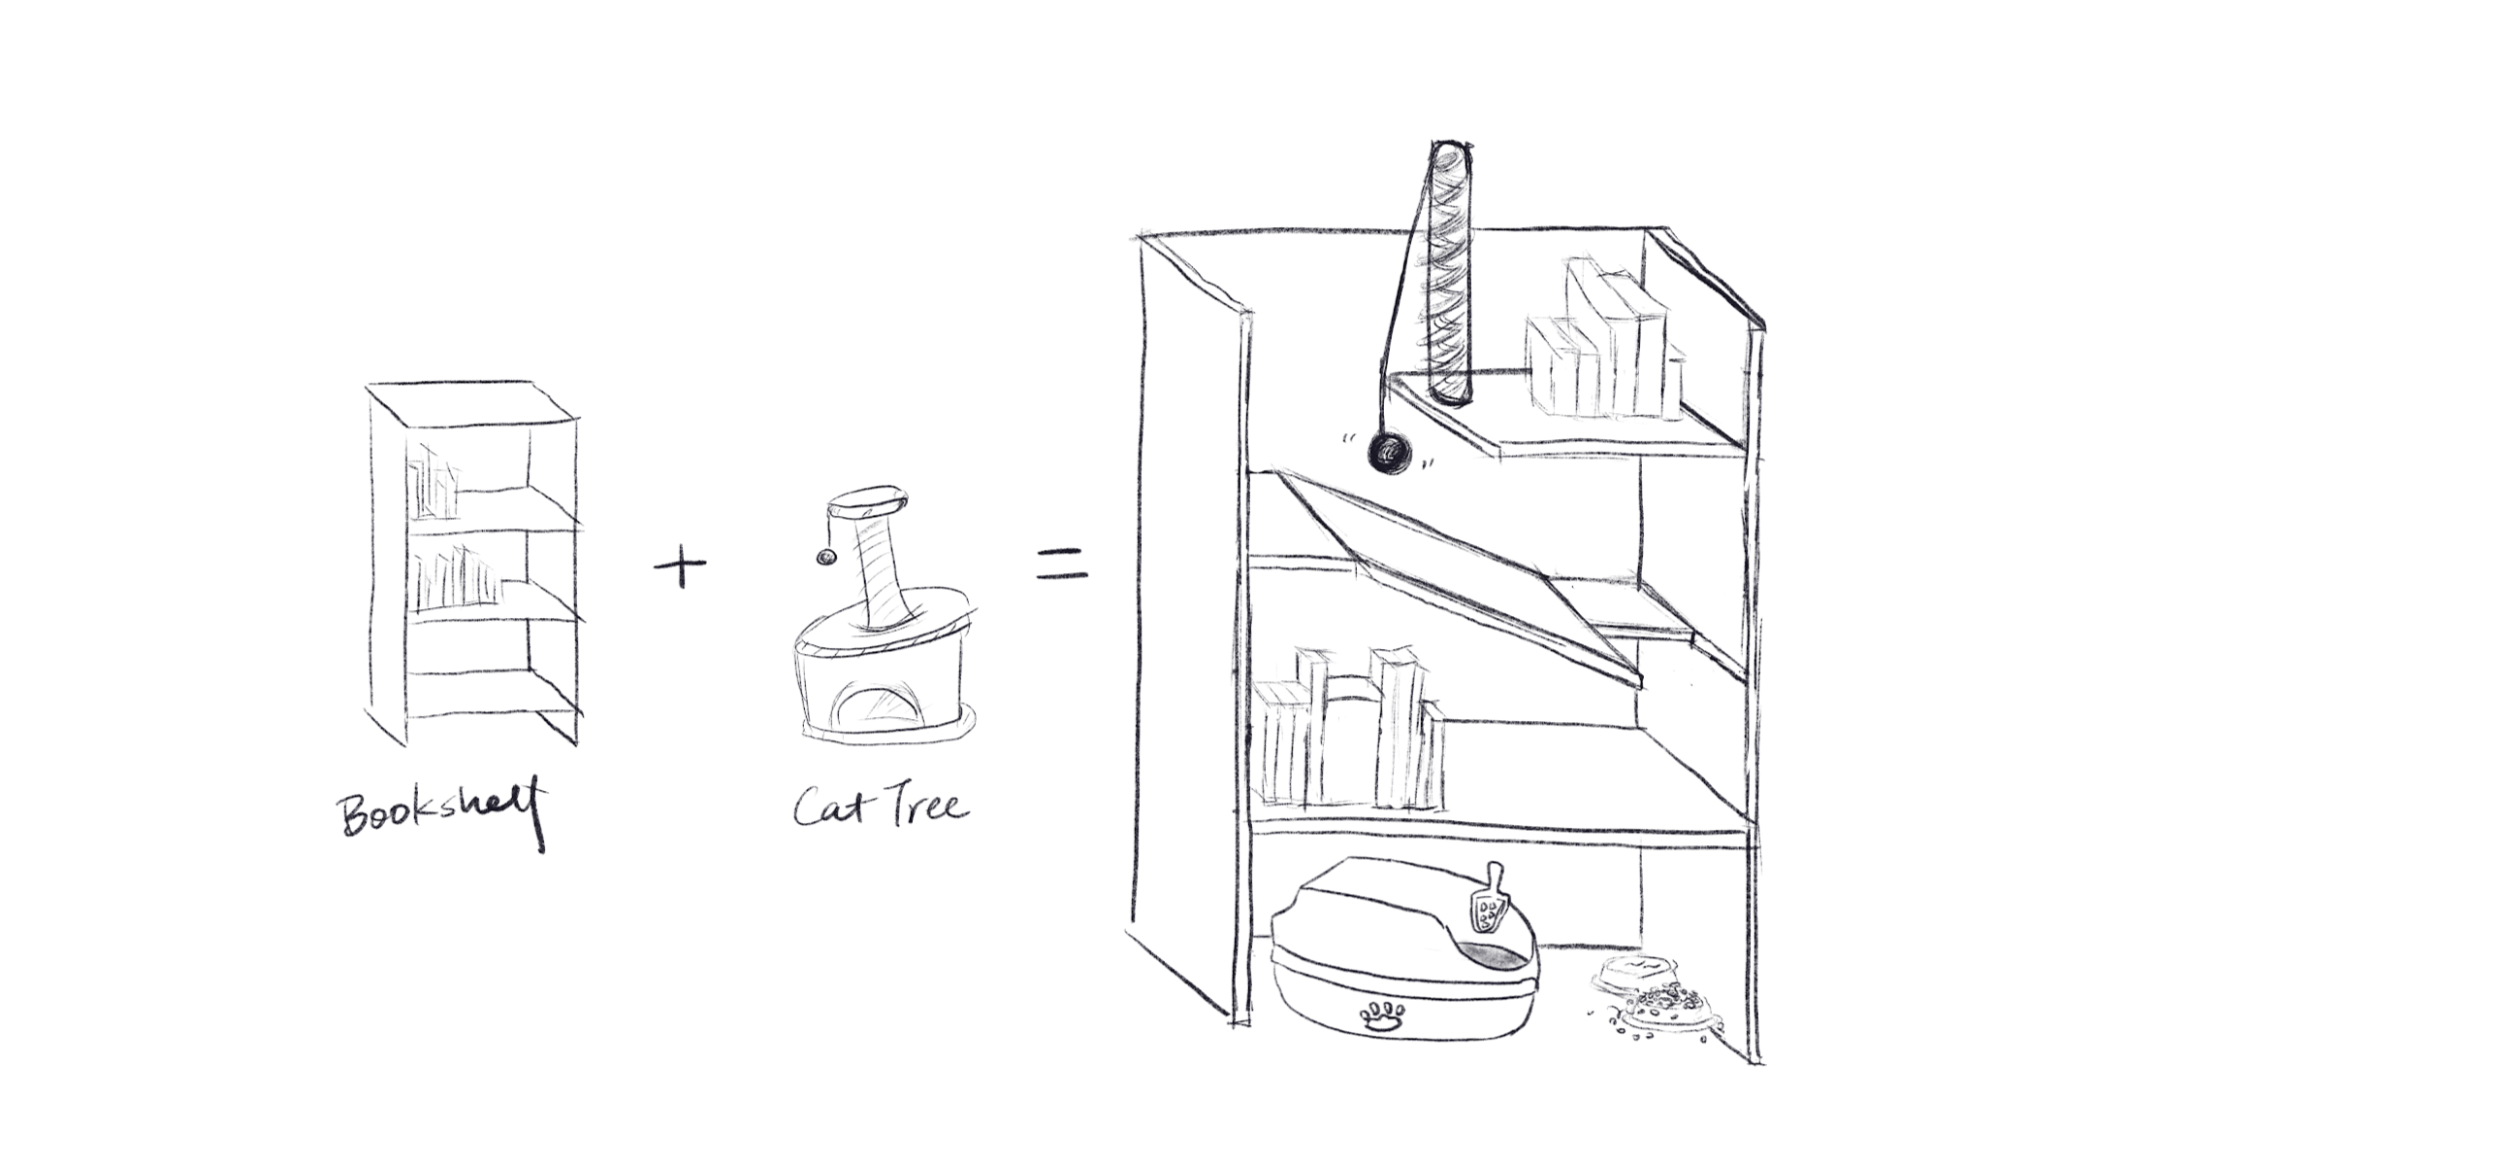 +
=
Bookshelf
Cat Tree